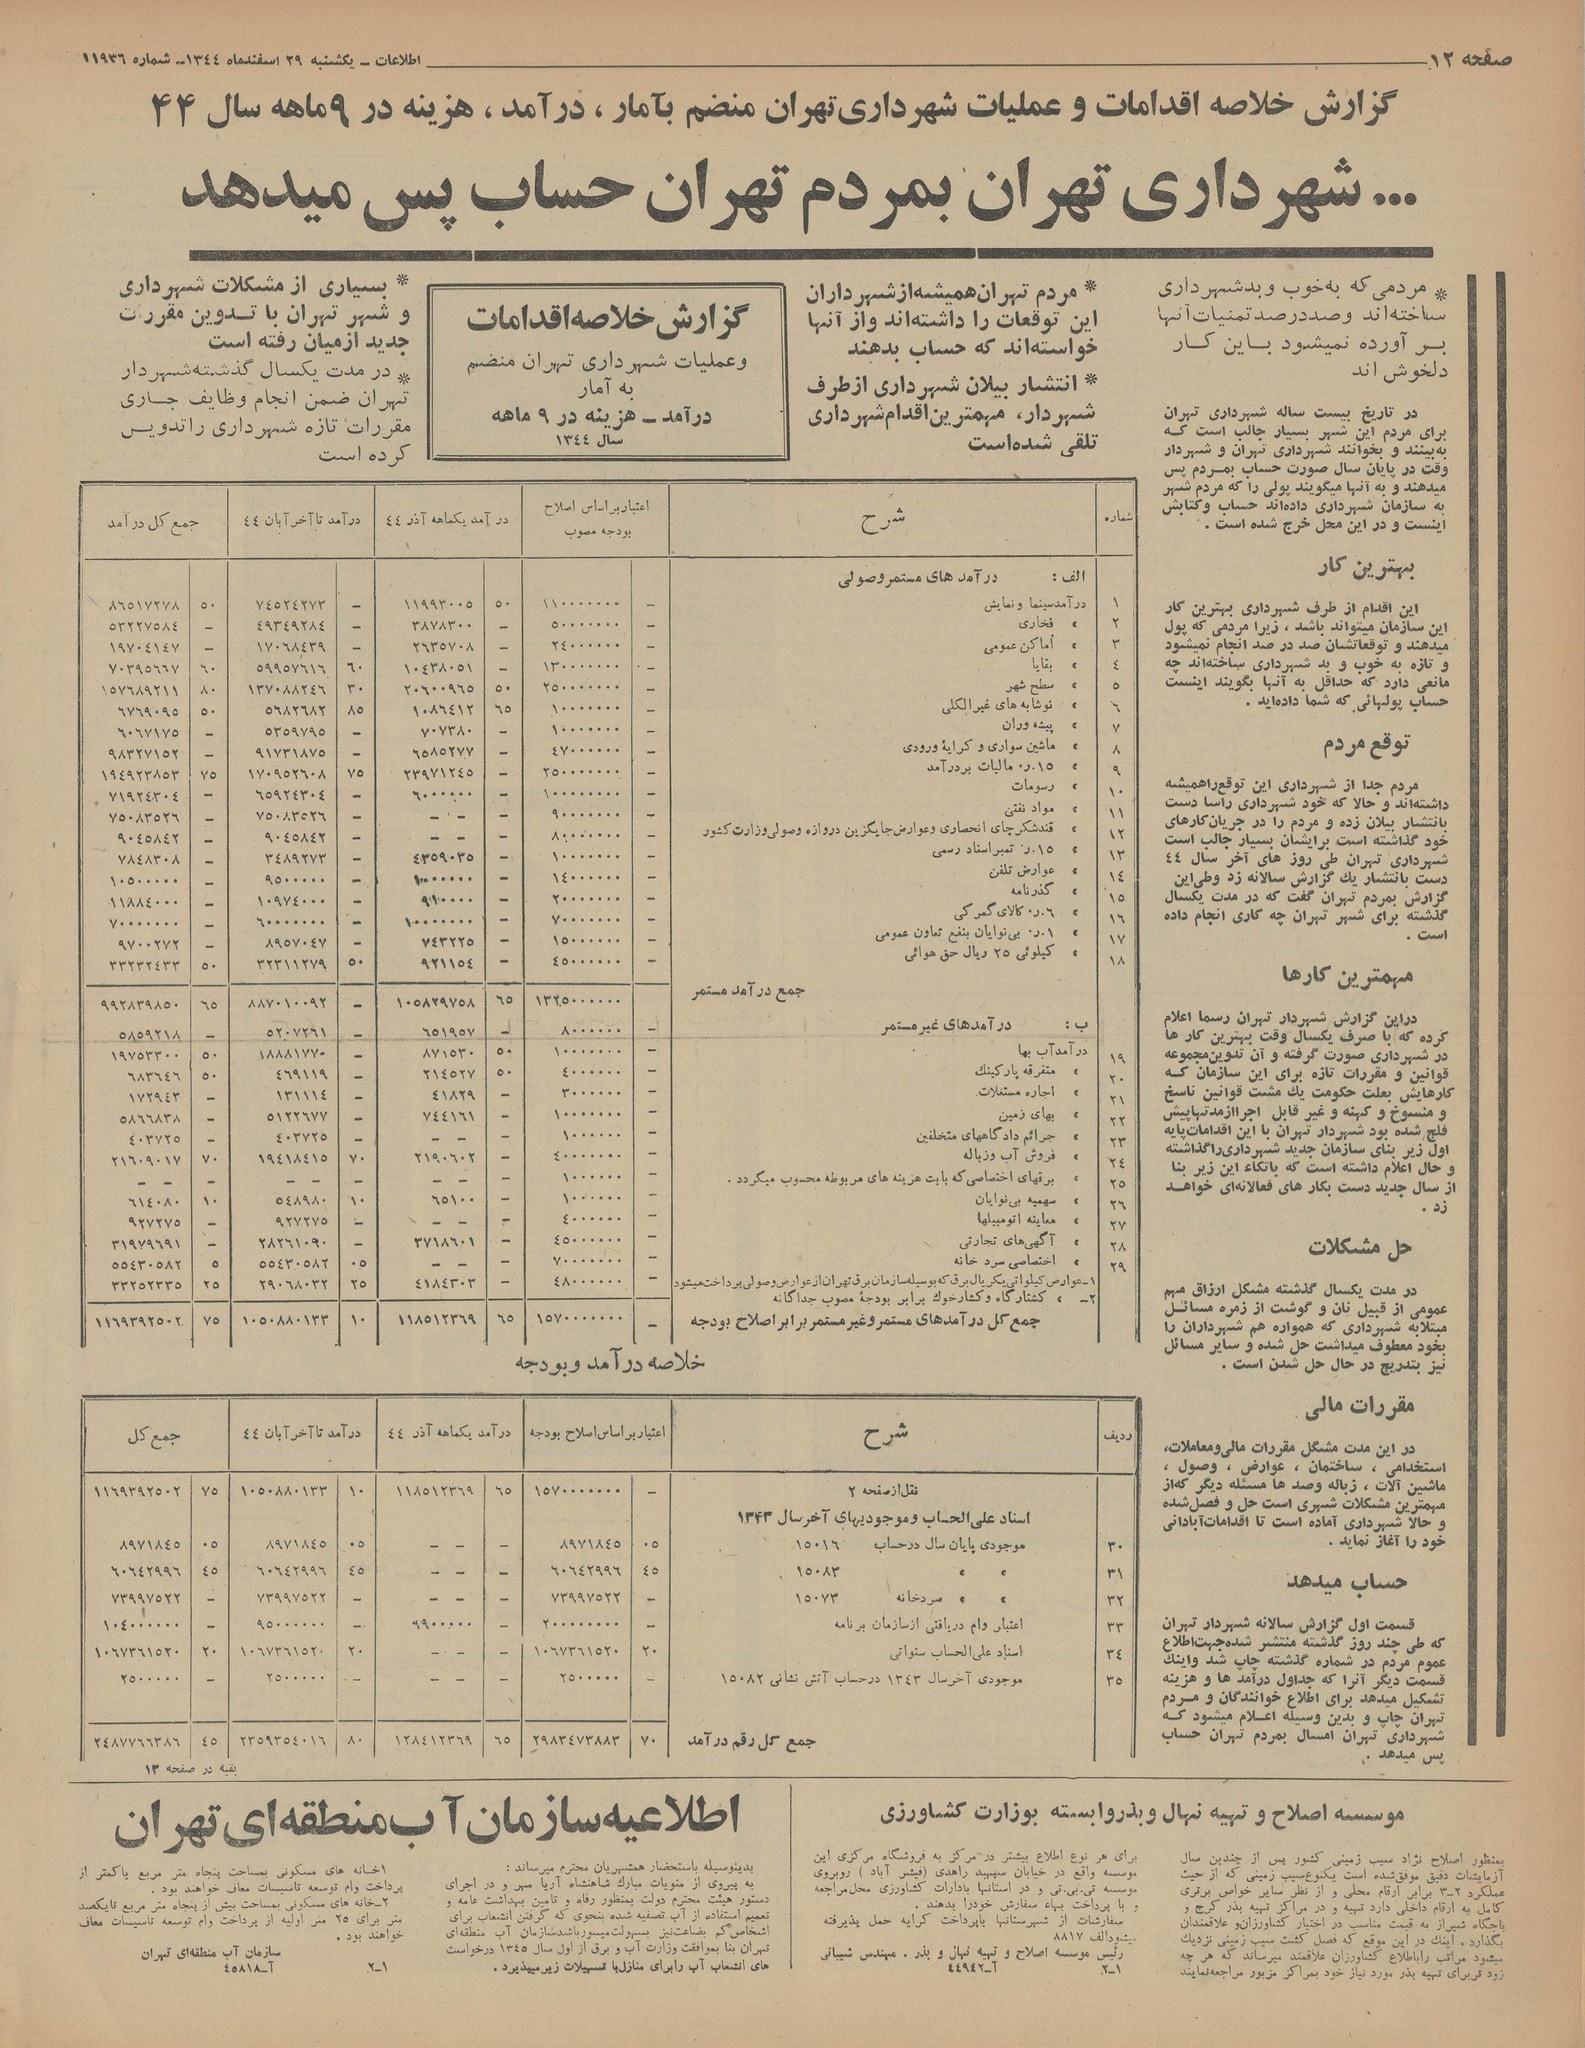 صفحه ۱۲
اطلاعات ـ یکشنبه ۲۹ اسفندماه ۱۳٤٤ـ شماره ۱۱۹۳٦
گزارش خلاصه اقدامات و عملیات شهرداری تهران منضم بآمار ، درآمد ، هزینه در ۹ ماهه سال ۴۴
... شهرداری تهران بمردم تهران حساب پس میدهد
* مردمی که به خوب و بد شهرداری
ساخته‌اند وصددرصد تمنیات آنها
بر آورده نمیشود باین کار
دلخوش اند
* مردم تهران همیشه از شهرداران
این توقعات را داشته‌اند و از آنها
خواسته‌اند که حساب بدهند
* انتشار بیلان شهرداری از طرف
شهردار، مهمترین اقدام شهرداری
تلقی شده است
گزارش خلاصه اقدامات
و عملیات شهرداری تهران منضم
به آمار
درآمد ـ هزینه در ۹ ماهه
سال ۱۳٤٤
* بسیاری از مشکلات شهرداری
و شهر تهران با تدوین مقررات
جدید از میان رفته است
* در مدت یکسال گذشته شهردار
تهران ضمن انجام وظایف جاری
مقررات تازه شهرداری را تدوین
کرده است
در تاریخ بیست ساله شهرداری تهران
برای مردم این شهر بسیار جالب است که
به‌بینند و بخوانند شهرداری تهران و شهردار
وقت در پایان سال صورت حساب بمردم پس
میدهند و به آنها میگویند پولی را که مردم شهر
به سازمان شهرداری داده‌اند حساب وکتابش
اینست و در این محل خرج شده است .
بهترین کار
این اقدام از طرف شهرداری بهترین کار
این سازمان میتواند باشد ، زیرا مردمی که پول
میدهند و توقعاتشان صد در صد انجام نمیشود
و تازه به خوب و بد شهرداری ساخته‌اند چه
مانعی دارد که حداقل به آنها بگویند اینست
حساب پولهائی که شما داده‌اید .
توقع مردم
مردم جدا از شهرداری این توقع را همیشه
داشته‌اند و حالا که خود شهرداری راسا دست
بانتشار بیلان زده و مردم را در جریان کارهای
خود گذاشته است برایشان بسیار جالب است
شهرداری تهران طی روز های آخر سال ٤٤
دست بانتشار یك گزارش سالانه زد وطی این
گزارش بمردم تهران گفت که در مدت یکسال
گذشته برای شهر تهران چه کاری انجام داده
است .
مهمترین کارها
دراین گزارش شهردار تهران رسما اعلام
کرده که با صرف یکسال وقت بهترین کار ها
در شهرداری صورت گرفته و آن تدوین مجموعه
قوانین و مقررات تازه برای این سازمان که
کارهایش بعلت حکومت یك مشت قوانین ناسخ
و منسوخ و کهنه و غیر قابل اجرا ازمدتها پیش
فلج شده بود شهردار تهران با این اقدامات پایه
اول زیر بنای سازمان جدید شهرداری را گذاشته
و حال اعلام داشته است که باتکاء این زیر بنا
از سال جدید دست بکار های فعالانه‌ای خواهد
زد .
حل مشکلات
در مدت یکسال گذشته مشکل ارزاق مهم
عمومی از قبیل نان و گوشت از زمره مسائل
مبتلابه شهرداری که همواره هم شهرداران را
بخود معطوف میداشت حل شده و سایر مسائل
نیز بتدریج در حال حل شدن است .
مقررات مالی
در این مدت مشگل مقررات مالی ومعاملات،
استخدامی ، ساختمان ، عوارض ، وصول ،
ماشین آلات ، زباله وصد ها مسئله دیگر که از
مهمترین مشکلات شهری است حل و فصل شده
و حالا شهرداری آماده است تا اقدامات آبادانی
خود را آغاز نماید .
حساب میدهد
قسمت اول گزارش سالانه شهردار تهران
که طی چند روز گذشته منتشر شده جهت اطلاع
عموم مردم در شماره گذشته چاپ شد واینك
قسمت دیگر آنرا که جداول درآمد ها و هزینه
تشکیل میدهد برای اطلاع خوانندگان و مردم
تهران چاپ و بدین وسیله اعلام میشود که
شهرداری تهران امسال بمردم تهران حساب
پس میدهد .
شماره | شرح | اعتبار بر اساس اصلاح بودجه مصوب | درآمد یکماهه آذر ٤٤ | درآمد تا آخر آبان ٤٤ | جمع کل درآمد
الف : درآمد های مستمر وصولی
۱ درآمد سینما و نمایش – ۱۱۰۰۰۰۰۰۰ ۵۰ ۱۱۹۹۳۰۰۵ – ۷٤۵۲٤۲۷۳ ۵۰ ۸٦۵۱۷۲۷۸
۲ » فخاری – ۵۰۰۰۰۰۰۰ – ۳۸۷۸۳۰۰ – ٤۹۳٤۹۲۸٤ – ۵۳۲۲۷۵۸٤
۳ » اماکن عمومی – ۲٤۰۰۰۰۰۰ – ۲٦۳۵۷۰۸ – ۱۷۰٦۸٤۳۹ – ۱۹۷۰٤۱٤۷
٤ » بقایا – ۱۳۰۰۰۰۰۰۰ – ۱۰٤۳۸۰۵۱ ٦۰ ۵۹۹۵۷٦۱٦ ٦۰ ۷۰۳۹۵٦٦۷
۵ » سطح شهر – ۲۵۰۰۰۰۰۰۰ ۵۰ ۲۰٦۰۰۹٦۵ ۳۰ ۱۳۷۰۸۸۲٤٦ ۸۰ ۱۵۷٦۸۹۲۱۱
٦ » نوشابه های غیر الکلی – ۱۰۰۰۰۰۰۰ ٦۵ ۱۰۸٦٤۱۲ ۸۵ ۵٦۸۲٦۸۲ ۵۰ ٦۷٦۹۰۹۵
۷ » پیشه وران – ۱۰۰۰۰۰۰۰ – ۷۰۷۳۸۰ – ۵۳۵۹۷۹۵ – ٦۰٦۷۱۷۵
۸ » ماشین سواری و کرایهٔ ورودی – ٤۷۰۰۰۰۰۰ – ٦۵۸۵۲۷۷ – ۹۱۷۳۱۸۷۵ – ۹۸۳۲۷۱۵۲
۹ » ۱۵.ر۰ مالیات بردرآمد – ۲۵۰۰۰۰۰۰۰ – ۲۳۹۷۱۲٤۵ ۷۵ ۱۷۰۹۵۲٦۰۸ ۷۵ ۱۹٤۹۲۳۸۵۳
۱۰ » رسومات – ۱۰۰۰۰۰۰۰۰ – ٦۰۰۰۰۰۰ – ٦۵۹۲٤۳۰٤ – ۷۱۹۲٤۳۰٤
۱۱ » مواد نفتی – ۹۰۰۰۰۰۰۰ – – – – ۷۵۰۸۳۵۲٦ – ۷۵۰۸۳۵۲٦
۱۲ » قندشکر چای انحصاری و عوارض جایگزین دروازه وصولی وزارت کشور – ۸۰۰۰۰۰۰۰ – – – ۹۰٤۵۸٤۲ – ۹۰٤۵۸٤۲
۱۳ » ۱۵.ر۰ تمبر اسناد رسمی – ۱۰۰۰۰۰۰۰ – ٤۳۵۹۰۳۵ – ۳٤۸۹۲۷۳ – ۷۸٤۸۳۰۸
۱٤ » عوارض تلفن – ۱٤۰۰۰۰۰۰ – ۱۰۰۰۰۰۰ – ۹۵۰۰۰۰۰ – ۱۰۵۰۰۰۰۰
۱۵ » گذرنامه – ۲۰۰۰۰۰۰۰ – ۹۱۰۰۰۰ – ۱۰۹۷٤۰۰۰ – ۱۱۸۸٤۰۰۰
۱٦ » ٦.ر۰ کالای گمرکی – ۷۰۰۰۰۰۰۰ – ۱۰۰۰۰۰۰۰ – ٦۰۰۰۰۰۰۰ – ۷۰۰۰۰۰۰۰
۱۷ » ۱.ر۰ بی‌نوایان بنفع تعاون عمومی – ۱۵۰۰۰۰۰۰ – ۷٤۳۲۲۵ – ۸۹۵۷۰٤۷ – ۹۷۰۰۲۷۲
۱۸ » کیلوئی ۲۵ ریال حق هوائی – ٤۵۰۰۰۰۰۰ – ۹۲۱۱۵٤ ۵۰ ۳۲۳۱۱۲۷۹ ۵۰ ۳۳۲۳۲٤۳۳
جمع درآمد مستمر – ۱۳۲۵۰۰۰۰۰۰ ٦۵ ۱۰۵۸۲۹۷۵۸ – ۸۸۷۰۱۰۰۹۲ ٦۵ ۹۹۲۸۳۹۸۵۰
ب : درآمدهای غیر مستمر – ۸۰۰۰۰۰۰ – ٦۵۱۹۵۷ – ۵۲۰۷۲٦۱ – ۵۸۵۹۲۱۸
۱۹ درآمد آب بها – ۱۰۰۰۰۰۰۰ ۵۰ ۸۷۱۵۳۰ – ۱۸۸۸۱۷۷۰ ۵۰ ۱۹۷۵۳۳۰۰
۲۰ » متفرقه پارکینك – ٤۰۰۰۰۰۰ ۵۰ ۲۱٤۵۲۷ – ٤٦۹۱۱۹ ۵۰ ٦۸۳٦٤٦
۲۱ » اجاره مستغلات – ۳۰۰۰۰۰ – ٤۱۸۲۹ – ۱۳۱۱۱٤ – ۱۷۲۹٤۳
۲۲ » بهای زمین – ۱۰۰۰۰۰۰۰ – ۷٤٤۱٦۱ – ۵۱۲۲٦۷۷ – ۵۸٦٦۸۳۸
۲۳ » جرائم دادگاههای متخلفین – ۱۰۰۰۰۰۰ – – – ٤۰۳۷۲۵ – ٤۰۳۷۲۵
۲٤ » فروش آب وزباله – ٤۰۰۰۰۰۰۰ – ۲۱۹۰٦۰۲ ۷۰ ۱۹٤۱۸٤۱۵ ۷۰ ۲۱٦۰۹۰۱۷
۲۵ » برقهای اختصاصی که بابت هزینه های مربوطه محسوب میگردد . – ۱۰۰۰۰۰۰ – – – – – – –
۲٦ » سهمیه بی‌نوایان – ۱۰۰۰۰۰۰ – ٦۵۱۰۰ ۱۰ ۵٤۸۹۸۰ ۱۰ ٦۱٤۰۸۰
۲۷ » معاینه اتومبیلها – ٤۰۰۰۰۰۰ – – – ۹۲۷۲۷۵ – ۹۲۷۲۷۵
۲۸ » آگهی‌های تجارتی – ٤۵۰۰۰۰۰۰ – ۳۷۱۸٦۰۱ – ۲۸۲٦۱۰۹۰ – ۳۱۹۷۹٦۹۱
۲۹ » اختصاصی سرد خانه – ۷۰۰۰۰۰۰۰ – – ۰۵ ۵۵٤۳۰۵۸۲ ۵ ۵۵٤۳۰۵۸۲
۱ـ عوارض کیلواتی یکریال برق که بوسیله سازمان برق تهران از عوارض وصولی پرداخت میشود – ٤۸۰۰۰۰۰۰ – ٤۱۸٤۳۰۳ ۲۵ ۲۹۰٦۸۰۳۲ ۲۵ ۳۳۲۵۲۳۳۵
۲ـ » کشتارگاه و کشتار خوك برابر بودجهٔ مصوب جداگانه
جمع کل درآمدهای مستمر و غیر مستمر برابر اصلاح بودجه – ۱۵۷۰۰۰۰۰۰۰ ٦۵ ۱۱۸۵۱۲۳٦۹ ۱۰ ۱۰۵۰۸۸۰۱۳۳ ۷۵ ۱۱٦۹۳۹۲۵۰۲
خلاصه درآمد و بودجه
ردیف | شرح | اعتبار بر اساس اصلاح بودجه | درآمد یکماهه آذر ٤٤ | درآمد تا آخر آبان ٤٤ | جمع کل
نقل از صفحه ۲ – ۱۵۷۰۰۰۰۰۰۰ ٦۵ ۱۱۸۵۱۲۳٦۹ ۱۰ ۱۰۵۰۸۸۰۱۳۳ ۷۵ ۱۱٦۹۳۹۲۵۰۲
اسناد علی الحساب و موجودیهای آخر سال ۱۳۴۳
۳۰ موجودی پایان سال در حساب ۱۵۰۱٦ ۰۵ ۸۹۷۱۸٤۵ – – – ۰۵ ۸۹۷۱۸٤۵ ۰۵ ۸۹۷۱۸٤۵
۳۱ » » ۱۵۰۸۳ ٤۵ ٦۰٦٤۲۹۹٦ – – – ٤۵ ٦۰٦٤۲۹۹٦ ٤۵ ٦۰٦٤۲۹۹٦
۳۲ » » سردخانه ۱۵۰۷۳ – ۷۳۹۹۷۵۲۲ – – – – ۷۳۹۹۷۵۲۲ – ۷۳۹۹۷۵۲۲
۳۳ اعتبار وام دریافتی از سازمان برنامه – ۲۰۰۰۰۰۰۰۰ – ٦۹۰۰۰۰۰ – ۹۵۰۰۰۰۰۰ – ۱۰٤۰۰۰۰۰۰
۳٤ اسناد علی الحساب سنواتی ۲۰ ۱۰٦۷۳٦۱۵۲۰ – – – ۲۰ ۱۰٦۷۳٦۱۵۲۰ ۲۰ ۱۰٦۷۳٦۱۵۲۰
۳۵ موجودی آخر سال ۱۳٤۳ در حساب آتش نشانی ۱۵۰۸۲ – ۲۵۰۰۰۰۰ – – – – ۲۵۰۰۰۰۰ – ۲۵۰۰۰۰۰
جمع کل رقم درآمد ۷۰ ۲۹۸۳٤۷۳۸۸۳ ٦۵ ۱۲۸٤۱۲۳٦۹ ۸۰ ۲۳۵۹۳۵٤۰۱٦ ٤۵ ۲٤۸۷۷٦٦۳۸٦
بقیه در صفحه ۱۳
موسسه اصلاح و تهیه نهال و بذر وابسته بوزارت کشاورزی
بمنظور اصلاح نژاد سیب زمینی کشور پس از چندین سال
آزمایشات دقیق موفق‌شده است یکنوع سیب زمینی که از حیث
عملکرد ۲ـ۳ برابر ارقام محلی و از نظر سایر خواص برتری
کامل به ارقام داخلی دارد تهیه و در مراکز تهیه بذر کرج و
باجگاه شیراز به قیمت مناسب در اختیار کشاورزان و علاقمندان
بگذارد . اینك در این موقع که فصل کشت سیب زمینی نزدیك
میشود مراتب را باطلاع کشاورزان علاقمند میرساند که هر چه
زود تر برای تهیه بذر مورد نیاز خود بمراکز مزبور مراجعه نمایند
برای هر نوع اطلاع بیشتر در مرکز به فروشگاه مرکزی این
موسسه واقع در خیابان سپهبد زاهدی (فیشر آباد ) روبروی
موسسه تی.بی.تی و در استانها بادارات کشاورزی محل مراجعه
و با پرداخت بهاء سفارش خود را بدهند .
سفارشات از شهرستانها با پرداخت کرایه حمل پذیرفته
میشود الف ۸۸۱۷
رئیس موسسه اصلاح و تهیه نهال و بذر . مهندس شیبانی
۱ـ۲. آـ٤٤۹٤۲
اطلاعیه سازمان آب منطقه‌ای تهران
بدینوسیله باستحضار همشهریان محترم میرساند :
به پیروی از منویات مبارك شاهنشاه آریا مهر و در اجرای
دستور هیئت محترم دولت بمنظور رفاه و تامین بهداشت عامه و
تعمیم استفاده از آب تصفیه شده بنحوی که گرفتن انشعاب برای
اشخاص کم بضاعت نیز بسهولت میسور باشد سازمان آب منطقه‌ای
تهران بنا بموافقت وزارت آب و برق از اول سال ۱۳٤۵ درخواست
های انشعاب آب را برای منازل با تسهیلات زیر میپذیرد .
۱ـ خانه های مسکونی بمساحت پنجاه متر مربع یا کمتر از
پرداخت وام توسعه تاسیسات معاف خواهند بود .
۲ـ خانه های مسکونی بمساحت بیش از پنجاه متر مربع تا یکصد
متر برای ۲۵ متر اولیه از پرداخت وام توسعه تاسیسات معاف
خواهند بود .
سازمان آب منطقه‌ای تهران
۱ـ۲. آـ٤۵۸۱۸